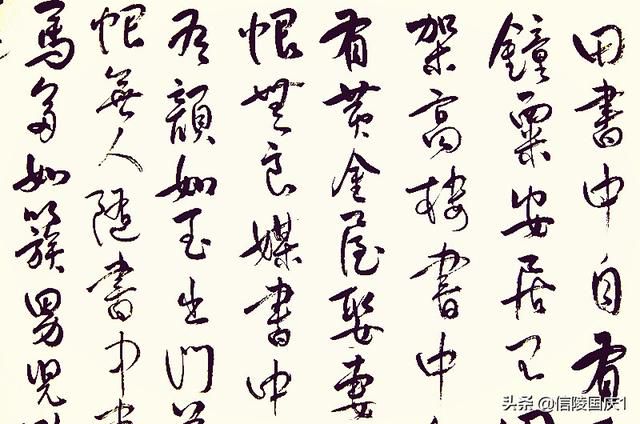 田書中自有
鐘粟安居不用
架高樓書中
有黃金屋娶妻
恨無良媒書中
有顏如玉出門莫
恨無人隨書中車
馬多如簇男兒
头条 @信陵国庆1